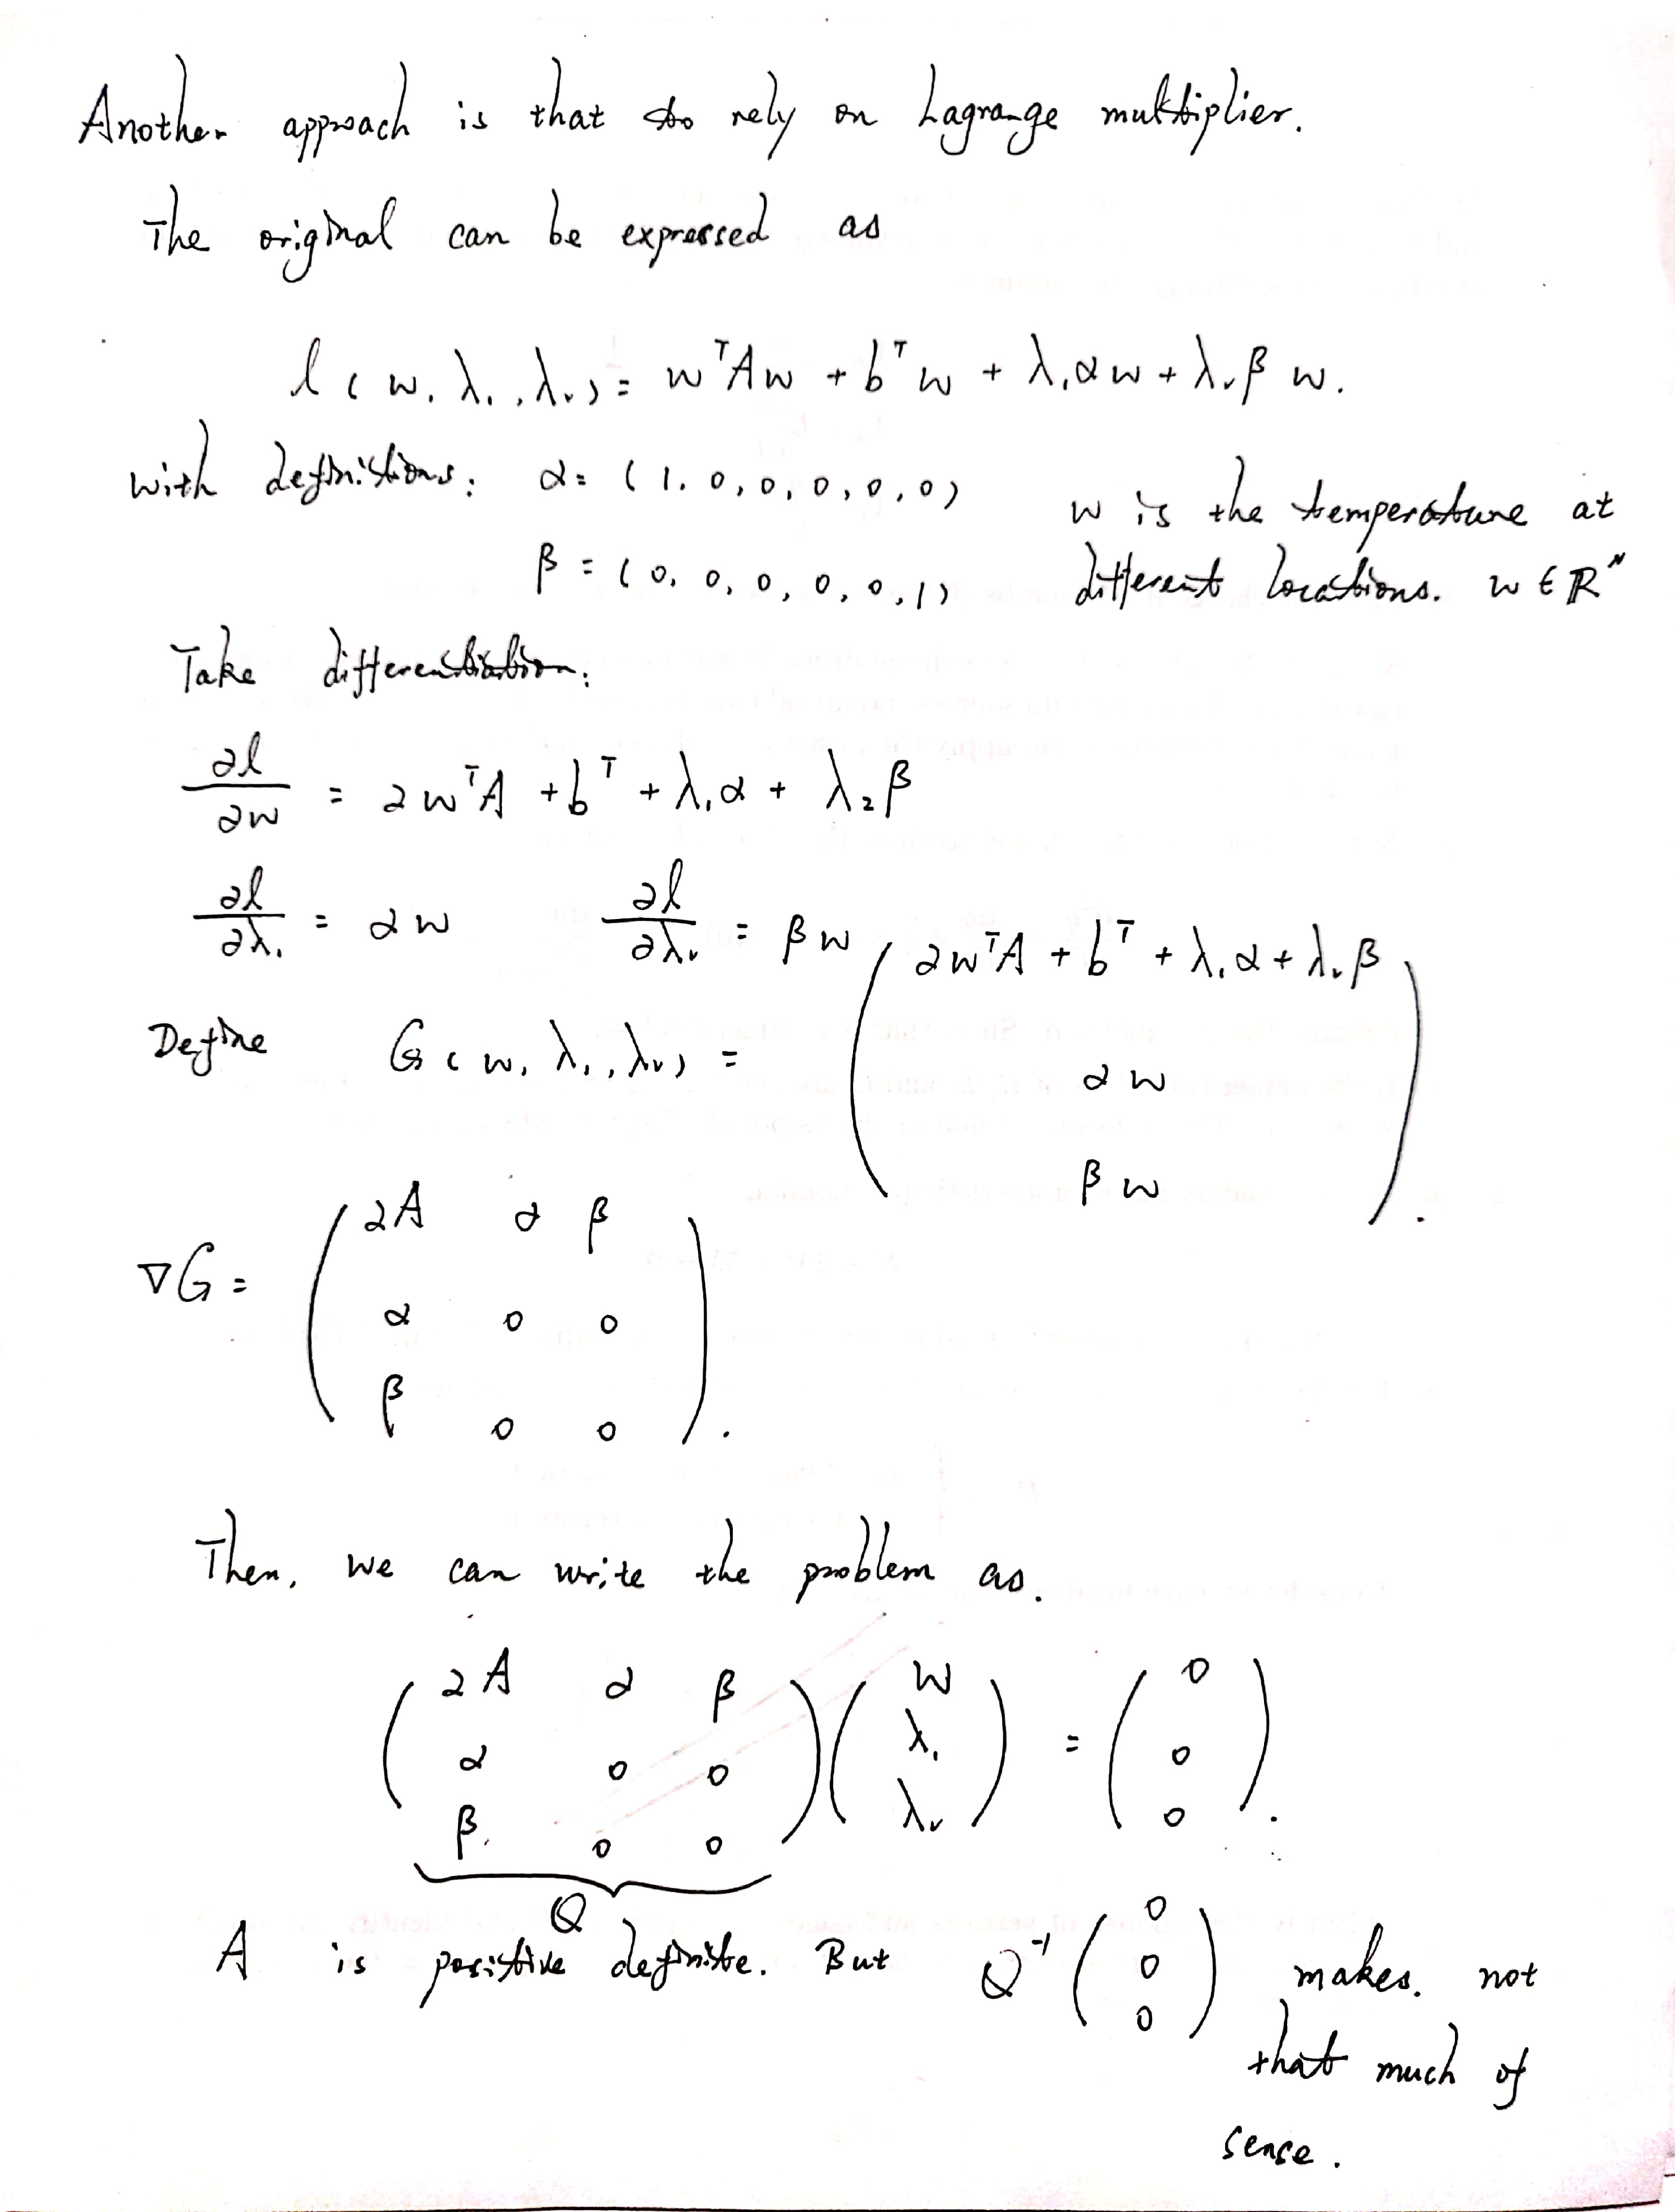 Another approach is that to rely on Lagrange multiplier.
The original can be expressed as
l(w, λ₁, λ₂) = wᵀAw + bᵀw + λ₁αw + λ₂βw.
with definitions: α = (1, 0, 0, 0, 0, 0)
β = (0, 0, 0, 0, 0, 1)
w is the temperature at
different locations. w ∈ ℝᴺ
Take differentiation:
∂l/∂w = 2wᵀA + bᵀ + λ₁α + λ₂β
∂l/∂λ₁ = αw ∂l/∂λ₂ = βw
Define G(w, λ₁, λ₂) = ( 2wᵀA + bᵀ + λ₁α + λ₂β
αw
βw ).
∇G = ( 2A α β
α 0 0
β 0 0 ).
Then, we can write the problem as.
( 2A α β ) ( w ) = ( 0 )
( α 0 0 ) ( λ₁ ) ( 0 )
( β 0 0 ) ( λ₂ ) ( 0 ).
Q
A is positive definite. But Q⁻¹ ( 0 0 0 ) makes. not
that much of
sense.